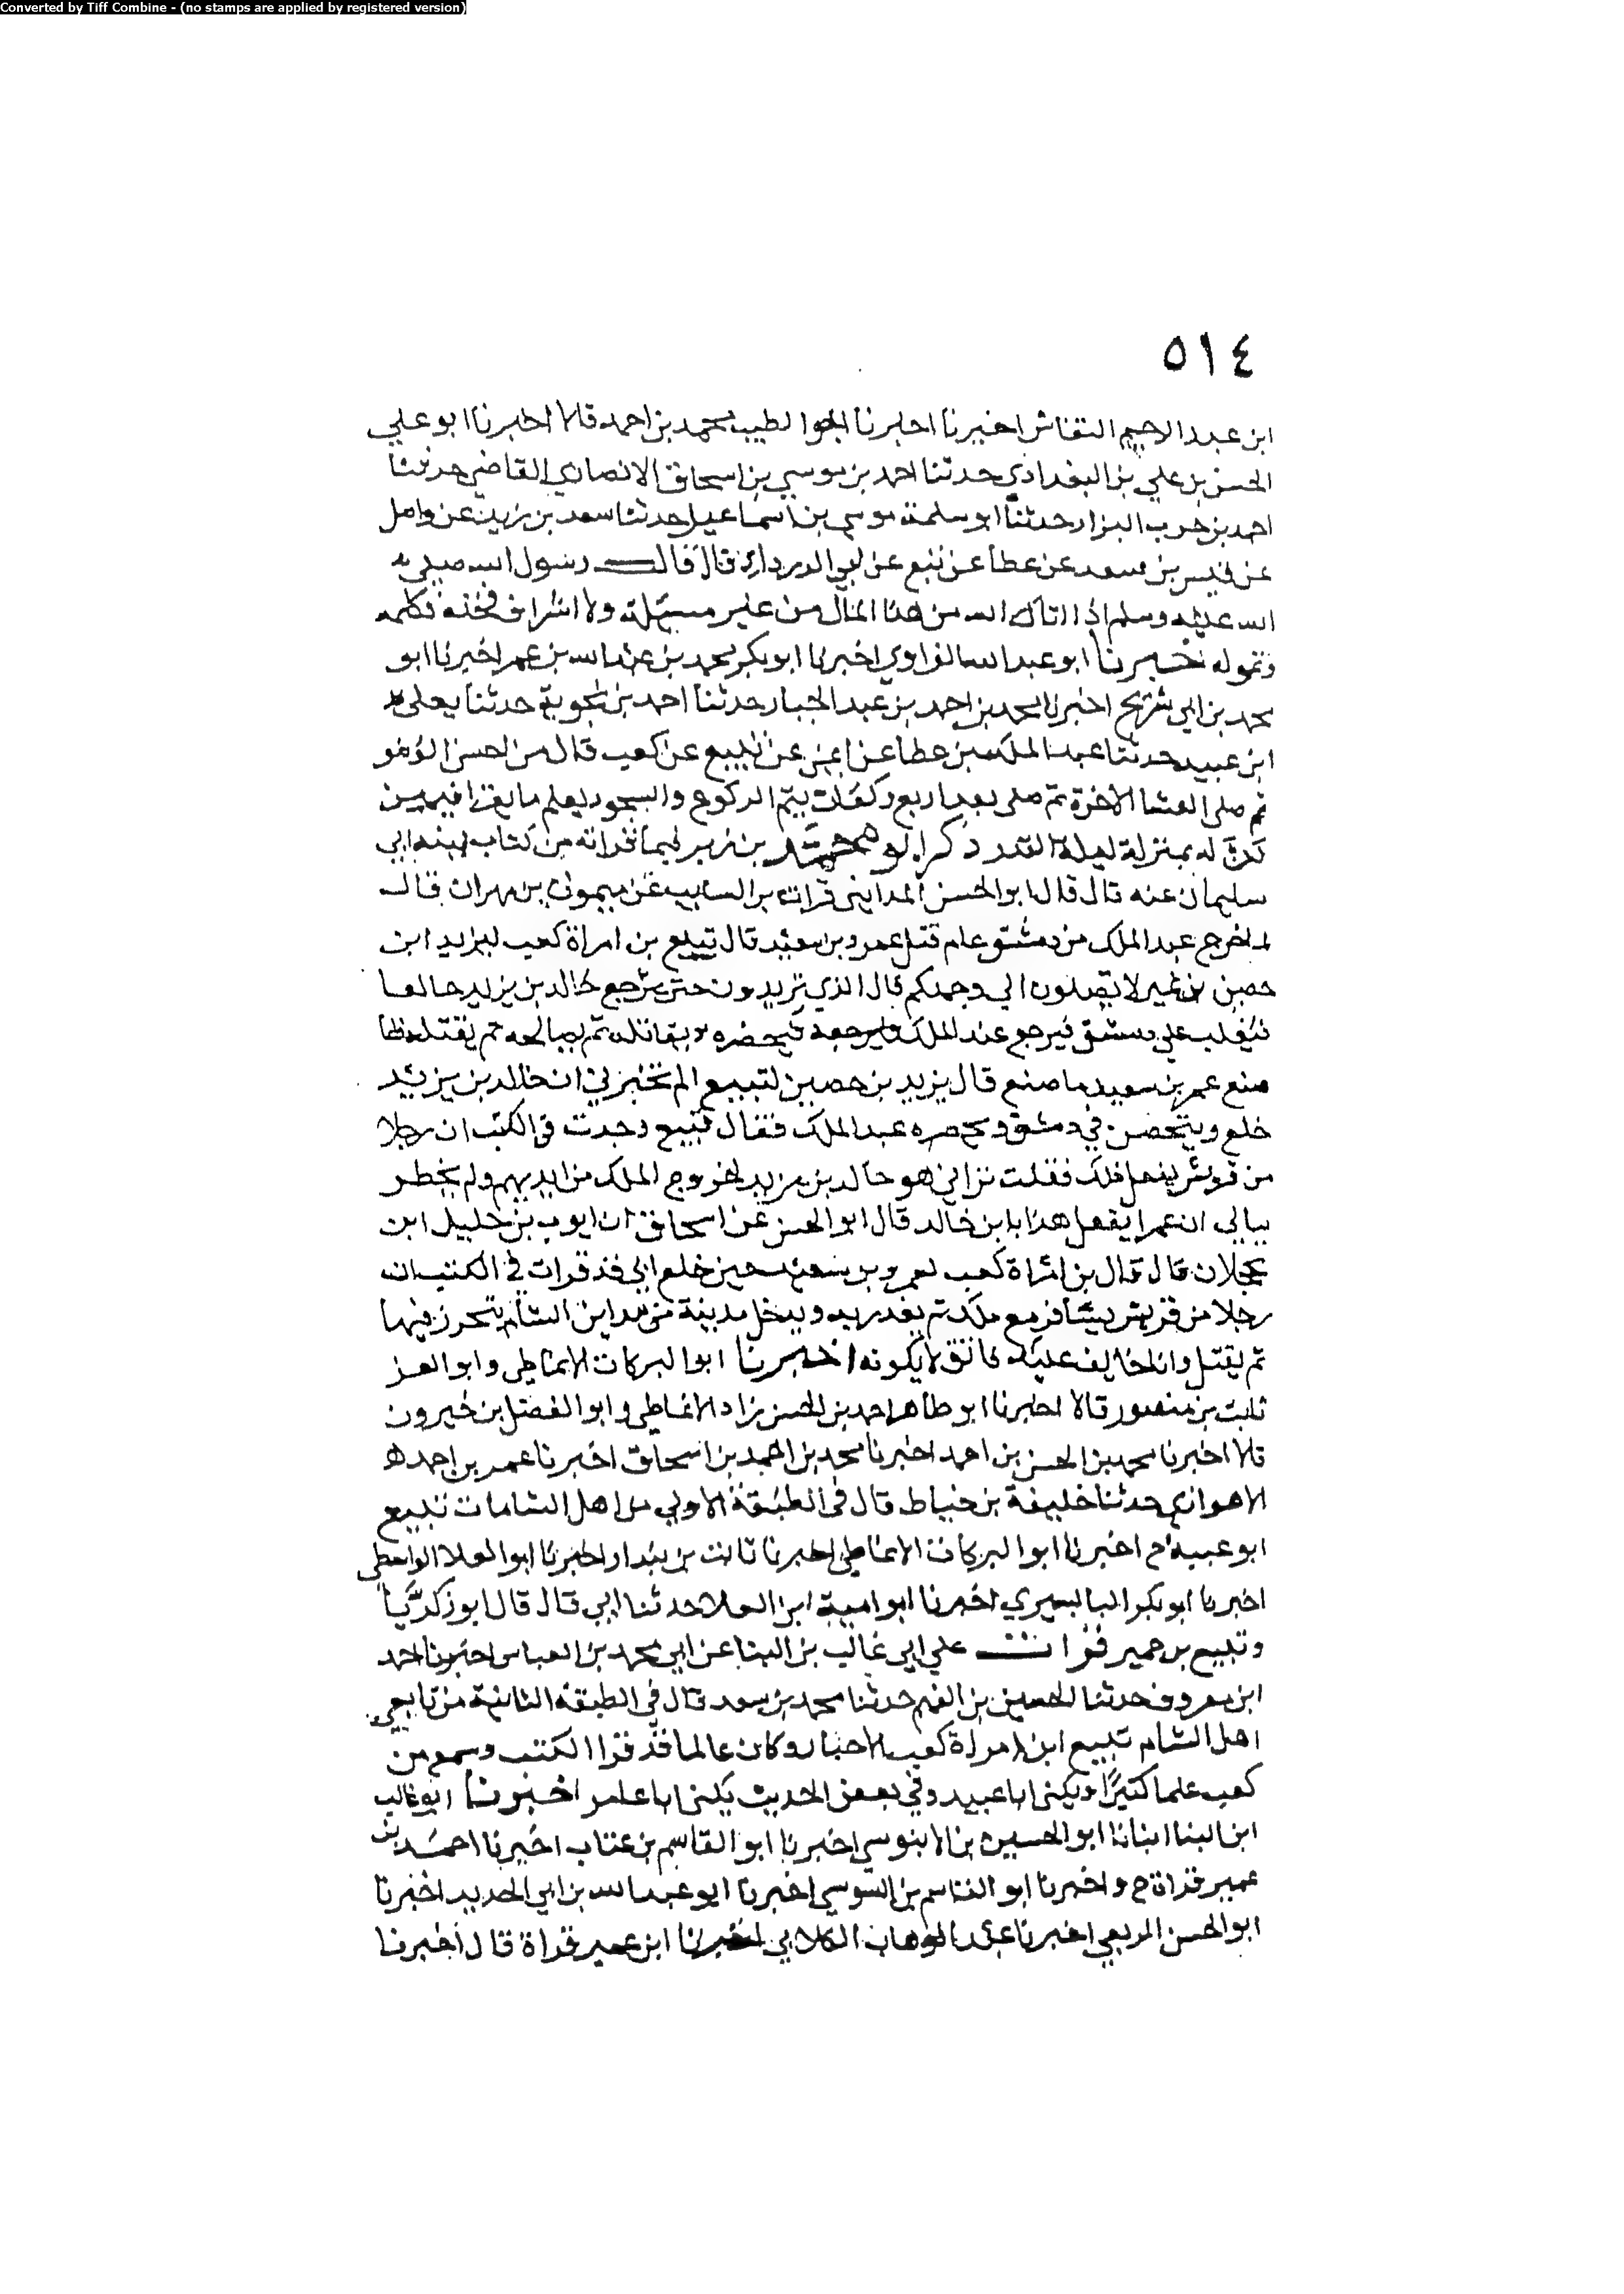 Converted by Tiff Combine - (no stamps are applied by registered version)
٥١٤
ابن عبد الرحيم النقاش اخبرنا اخبرنا ابو الطيب محمد بن احمد قالا اخبرنا ابو علي
الحسن بن علي بن البغدادي حدثنا احمد بن موسي بن اسحاق الانصاري القاضي حدثنا
احمد بن حرب البزار حدثنا ابو سلمة موسي بن اسماعيل حدثنا سعد بن زيد عن واصل
عن قيس بن سعد عن عطا عن تبيع عن ابي الدرداء قال قال رسول الله صلي
الله عليه وسلم اذا اتاك الله من هذا المال من غير مسئلة ولا اشراف فخذه فكله
وتموله اخبرنا ابو عبد الله الفراوي اخبرنا ابو بكر محمد بن عبد الله بن عمر اخبرنا ابو
محمد بن ابي شريح اخبرنا محمد بن احمد بن عبد الجبار حدثنا احمد بن نجوية حدثنا يعلي
ابن عبيد حدثنا عبد الملك بن عطا عن ايمن عن تبيع عن كعب قال من احسن الوضو
ثم صلي العشا الاخرة ثم صلي بعدها اربع ركعات يتم الركوع والسجود يعلم ما يقرا فيهن
كن له بمنزلة ليلة القدر ذكر ابو محمد بن زبر فيما قراته من كتاب ابنه ابي
سليمان عنه قال قال ابو الحسن المدايني قرات بن السايب عن ميمون بن مهران قال
لما خرج عبد الملك من دمشق عام قتل عمرو بن سعيد قال تبيع بن امراة كعب ليزيد ابن
حصين بن نمير لا تصلون الي وجهكم قال الذي تريدون حتي يرجع خالد بن يزيد خالعا
فيغلب علي دمشق فيرجع عبد الملك فيحضره ويقاتله ثم يصالحه ثم يقتله فلما
صنع عمر بن سعيد ما صنع قال يزيد بن حصين لتبيع الم تخبرني ان خالد بن يزيد
خلع ويتحصن في دمشق ويحصره عبد الملك فقال تبيع وجدت في الكتب ان رجلا
من قريش يفعل ذلك فقلت تراني هو خالد بن يزيد لخروج الملك من ايديهم ولم يخطر
ببالي ان عمرا يفعل هذا يا ابن خالد قال ابو الحسن عن اسحاق ان ايوب بن خليل ابن
عجلان قال قال بن امراة كعب لعمرو بن سعيد حين خلع اني قد قرات في الكتب ان
رجلا من قريش يسافر مع ملك ثم يغدر به ويدخل مدينة من مداين الشام يتحرز فيها
ثم يقتل واناخايف عليك فاتق لا يكونه اخبرنا ابو البركات الانماطي وابو العز
ثابت بن منصور قالا اخبرنا ابو طاهر احمد بن الحسن زاد الانماطي وابو الفضل بن خيرون
قالا اخبرنا محمد بن الحسن بن احمد اخبرنا محمد بن احمد بن اسحاق اخبرنا عمر بن احمد
الاهوازي حدثنا خليفة بن خياط قال في الطبقة الاولي من اهل الشامات تبيع
ابو عبيدة ح اخبرنا ابو البركات الانماطي اخبرنا ثابت بن بندار اخبرنا ابو العلا الواسطي
اخبرنا ابو بكر البابسيري اخبرنا ابو امية ابن العلا حدثنا ابي قال قال ابو زكريا
وتبيع بن حمير قرات علي ابي غالب بن البنا عن ابي محمد بن العباس اخبرنا احمد
ابن معروف حدثنا الحسين بن الفهم حدثنا محمد بن سعد قال في الطبقة الثانية من تابعي
اهل الشام تبيع ابن امراة كعب الاحبار وكان عالما قد قرا الكتب وسمع من
كعب علما كثيرا ويكني ابا عبيد وفي بعض الحديث يكني ابا عامر اخبرنا ابو غالب
ابن البنا انبانا ابو الحسين بن الابنوسي اخبرنا ابو القاسم بن عتاب اخبرنا احمد بن
عمير قراة ح واخبرنا ابو القاسم بن السوسي اخبرنا ابو عبد الله بن ابي الحديد اخبرنا
ابو الحسن الربعي اخبرنا عبد الوهاب الكلابي اخبرنا ابن عمير قراة قال اخبرنا